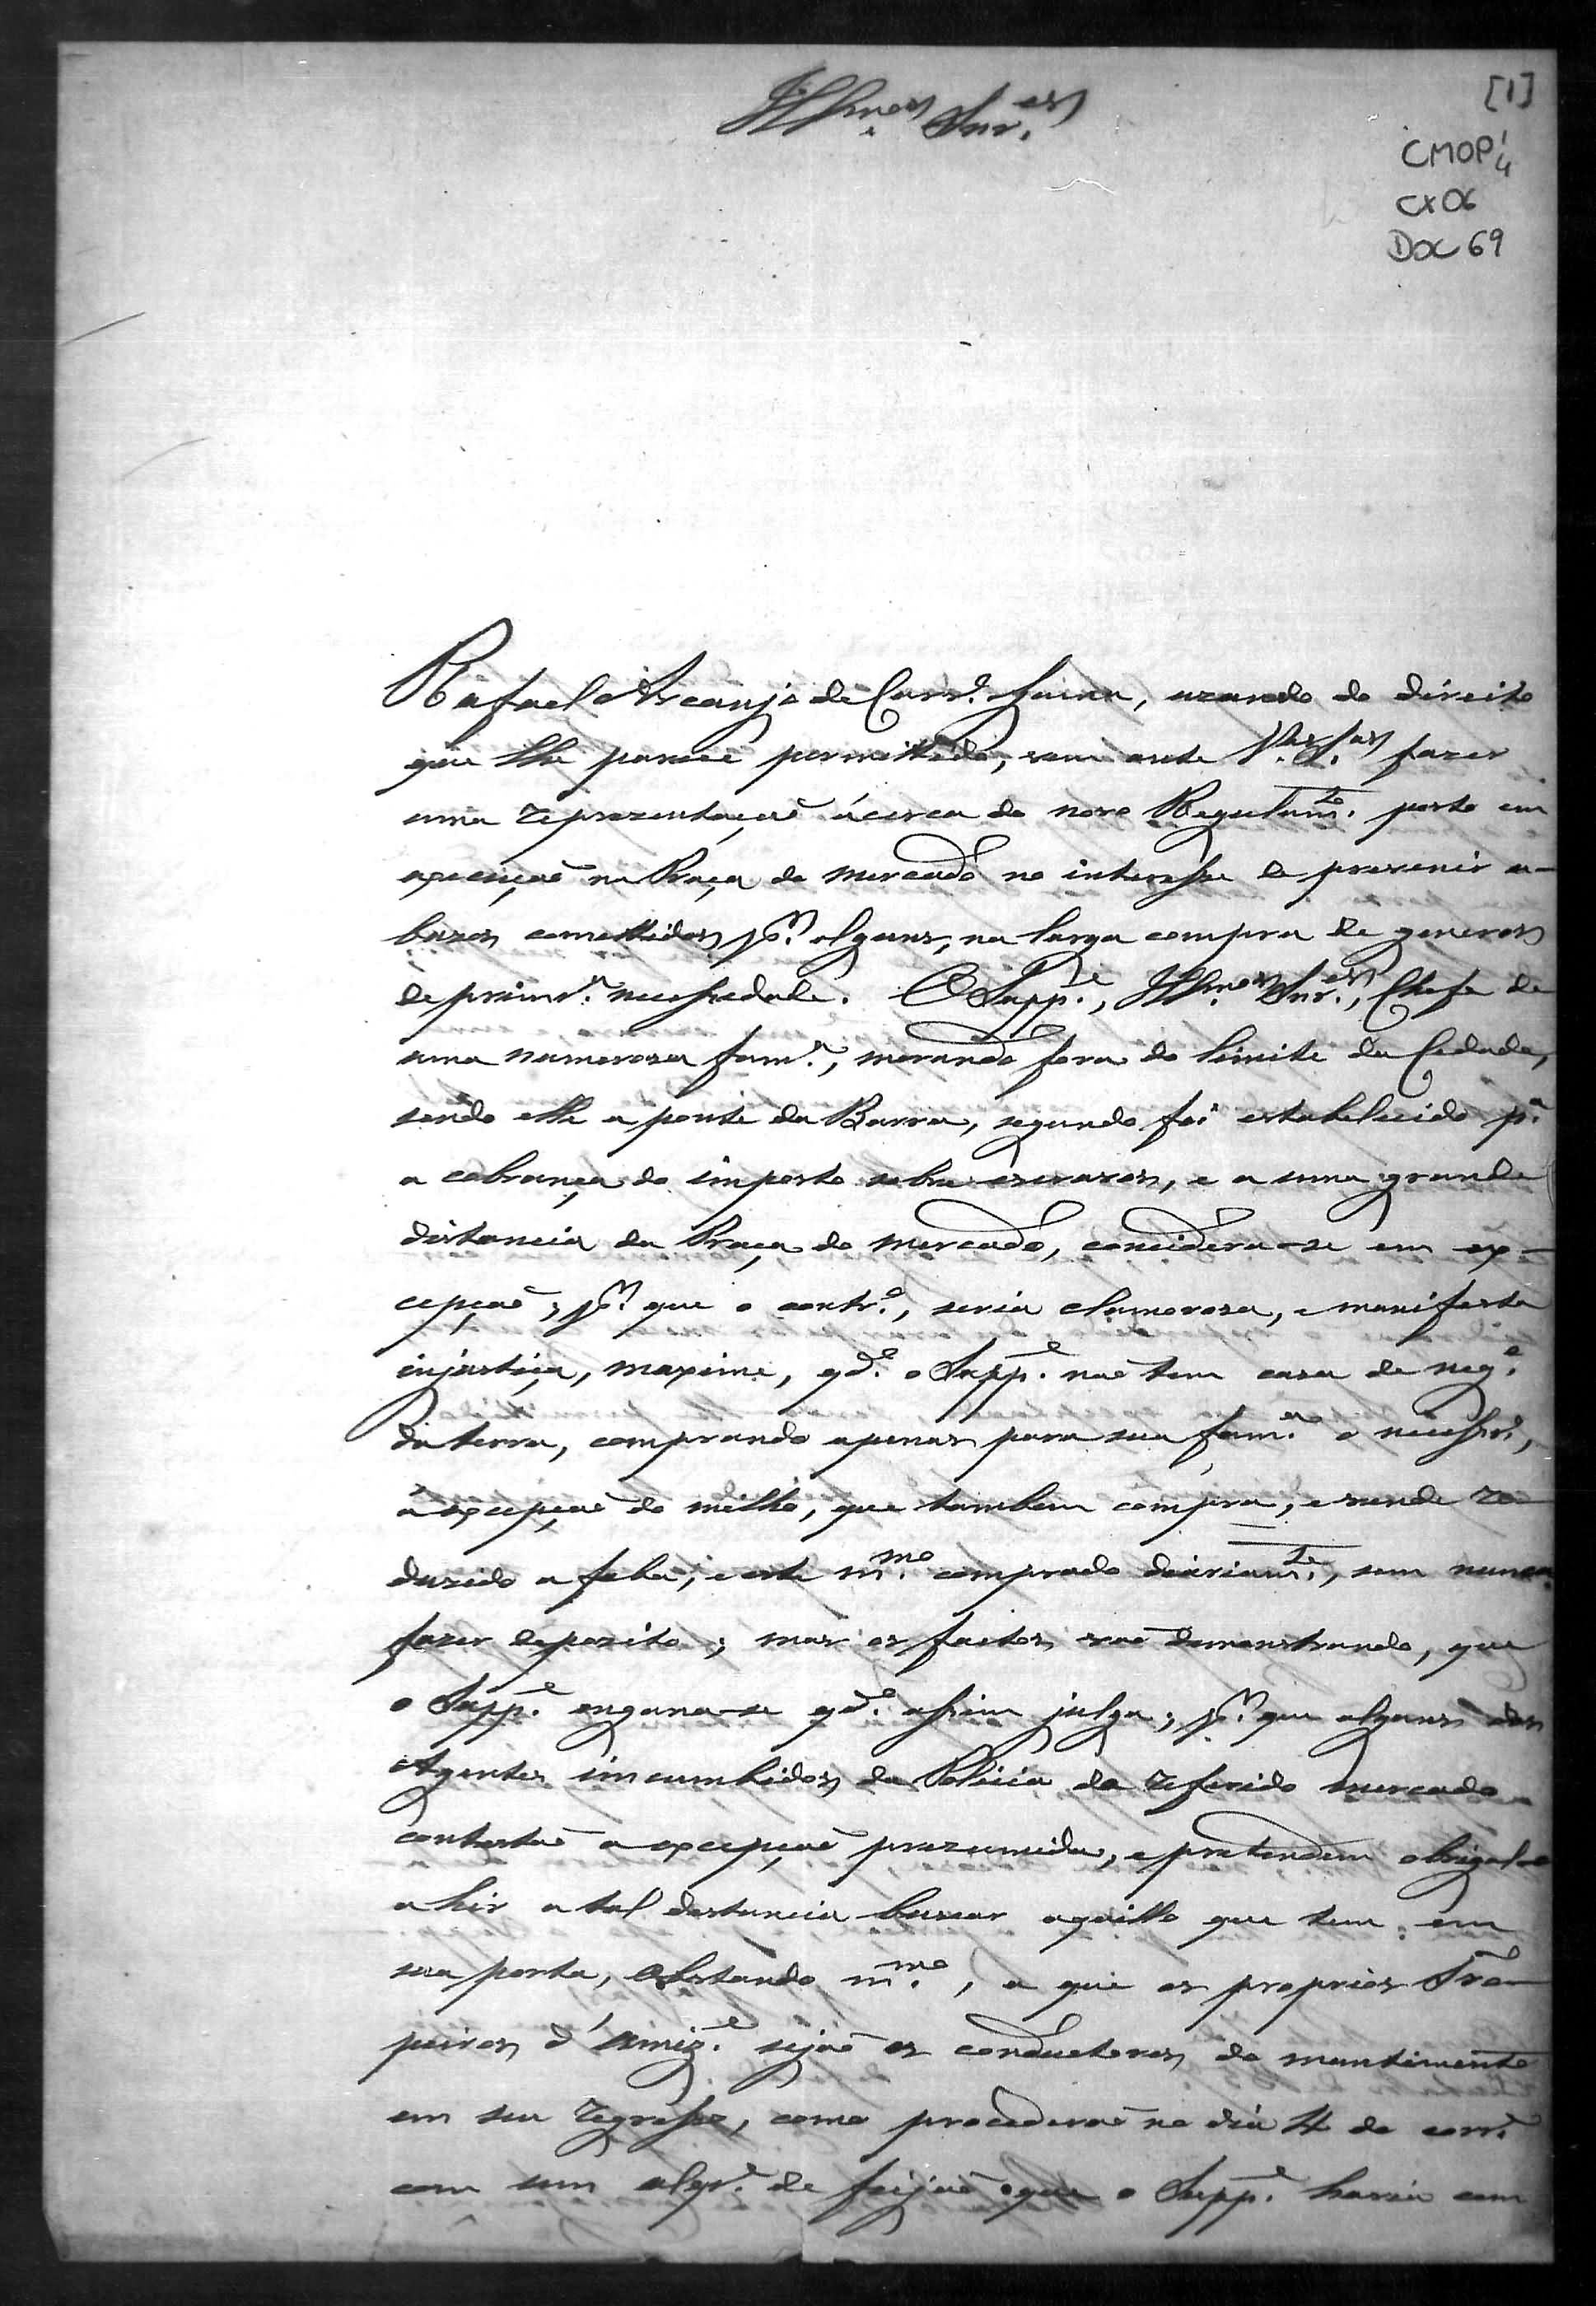 Illmos Snr.es
[1]
CMOP 1/4
CX 06
DOC 69
Rafael Arcanjo de Carvº. Gama, uzando do direito
que lhe parece permittido, vem ante V.as S.as fazer
uma reprezentação ácerca do novo Regulam.to posto em
execução na Praça do mercado no interesse de prevenir a-
buzos comettidos p.r alguns, na larga compra de generos
de primr.a necessidade. O Supp.e, Illmos Snr.es, Chefe de
uma numeroza fam.a, morando fora do limite da Cidade,
sendo elle a ponte da Barra, segundo foi estabelecido p.a
a cobrança do imposto sobre escravos, e a uma grande
distancia da Praça do mercado, concidera-se em ex-
cepção; p.r que o contr.o, seria clamoroza, e manifesta
injustiça, maxime, qd.o o Supp.e não tem caza de neg.o
da terra, comprando apenas para sua fam.a o necessr.o,
á excepção do milho, que tambem compra, e vende re-
duzido a fubá, e este m.mo comprado diariam.te, sem nunca
fazer depozito; mas os factos vão demonstrando, que
o Supp.e engana-se qd.o assim julga; p.r que alguns dos
Agentes incumbidos da Policia do referido mercado
contestão a excepção prezumida, e pretendem obrigal-o
a hir a tal distancia buscar aquillo que tem em
sua porta, obstando m.mo, a que os proprios Tro-
peiros d'amiz.e sejão os conductores do mantimento
em seu regresso, como procederão no dia 4 do corr.e
com um alqr.e de feijão que o Supp.e havia com